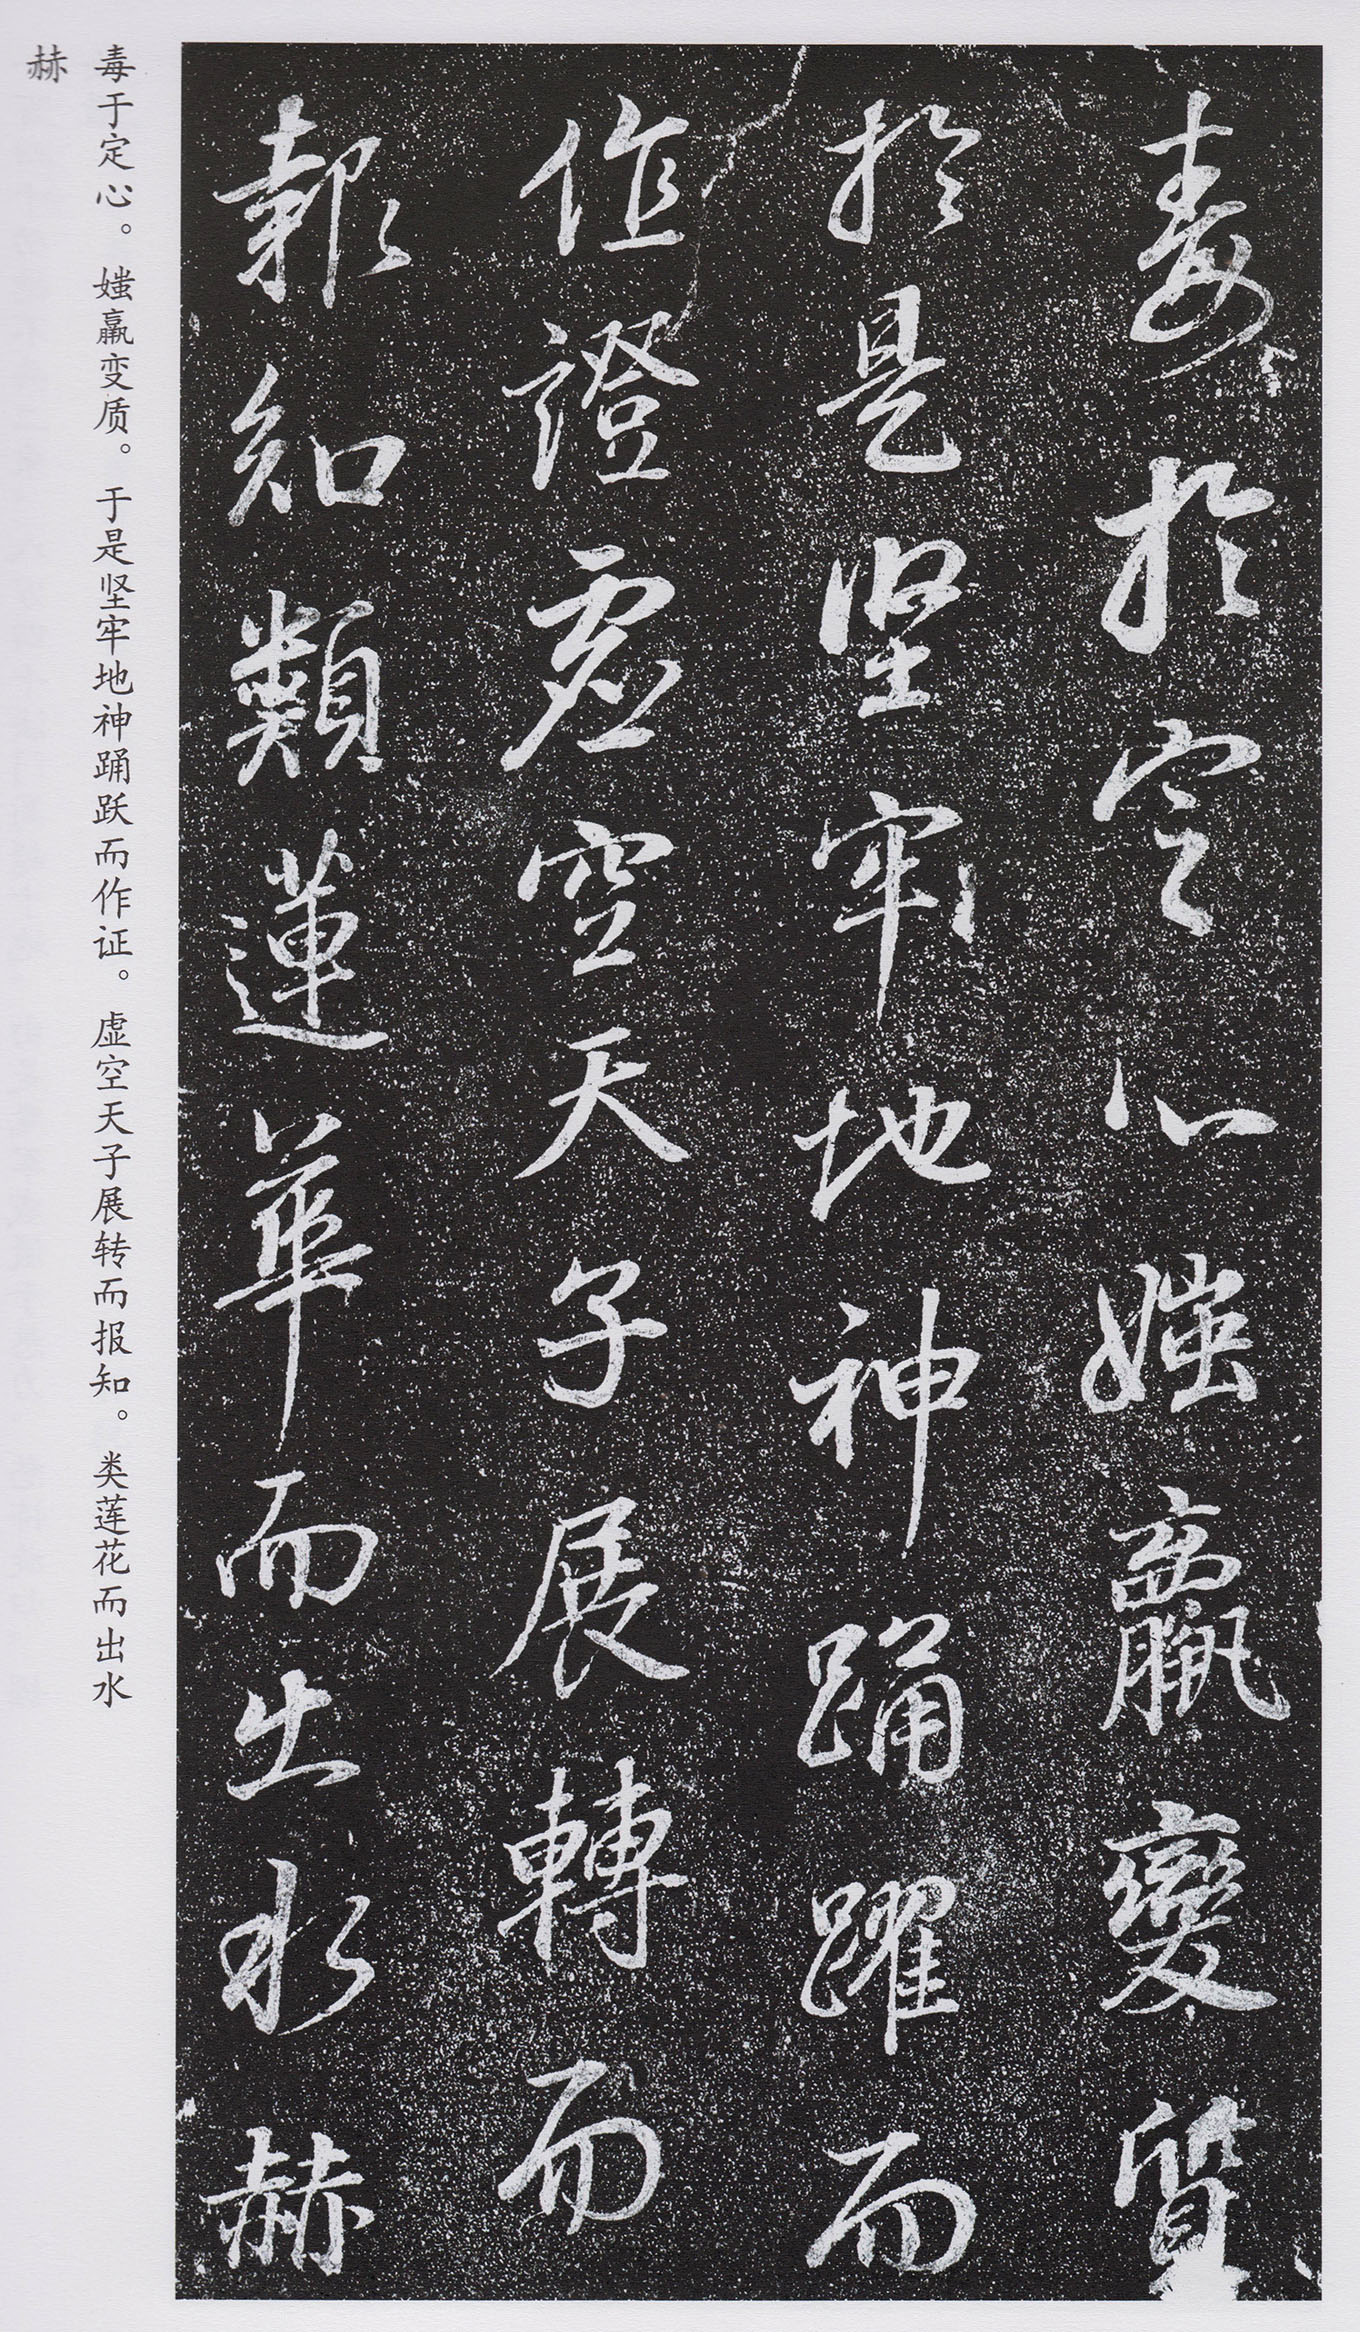 毒於定心媸羸變質
於是坚牢地神踊躍而
作證虛空天子展轉而
報知類蓮華而出水赫
毒于定心。媸羸变质。于是坚牢地神踊跃而作证。虚空天子展转而报知。类莲花而出水
赫